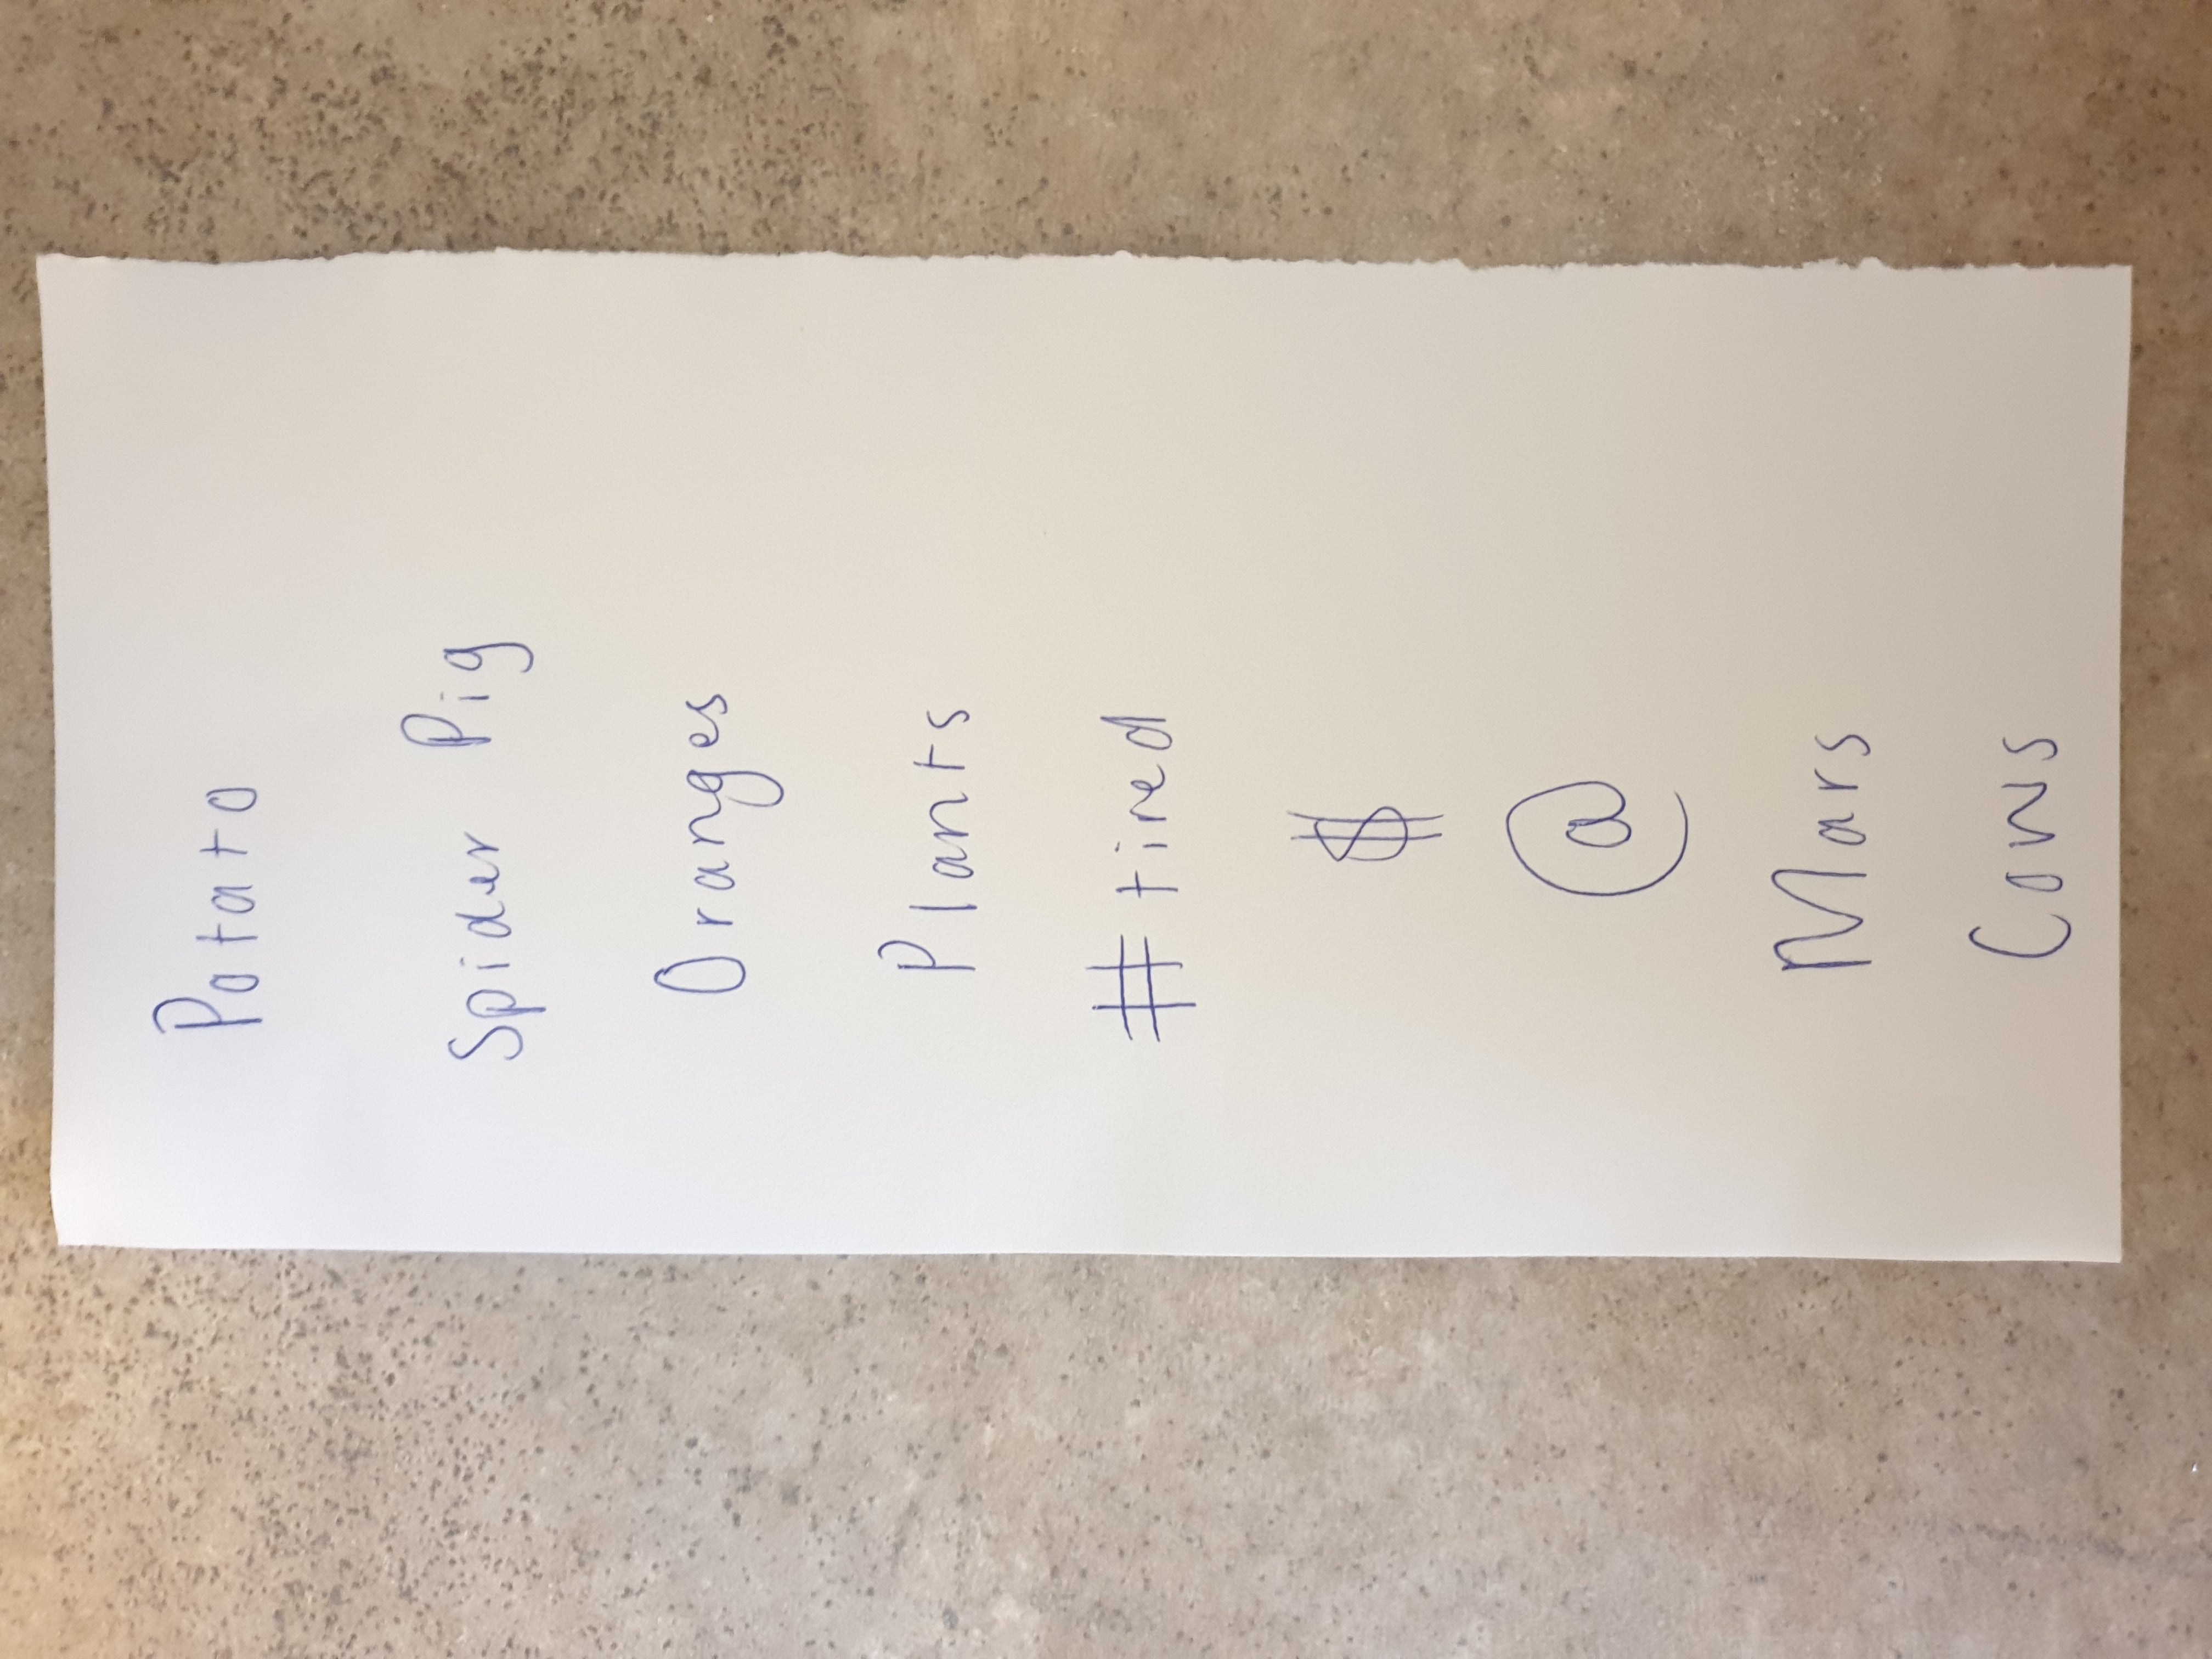 Potato
Spider Pig
Oranges
Plants
#tired
$
@
Mars
Cows